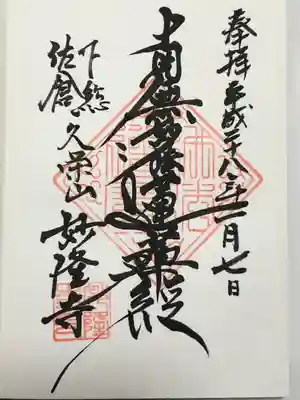 奉拝 平成二十八年一月七日
南無妙法蓮華経
下総
佐倉 久栄山 妙隆寺